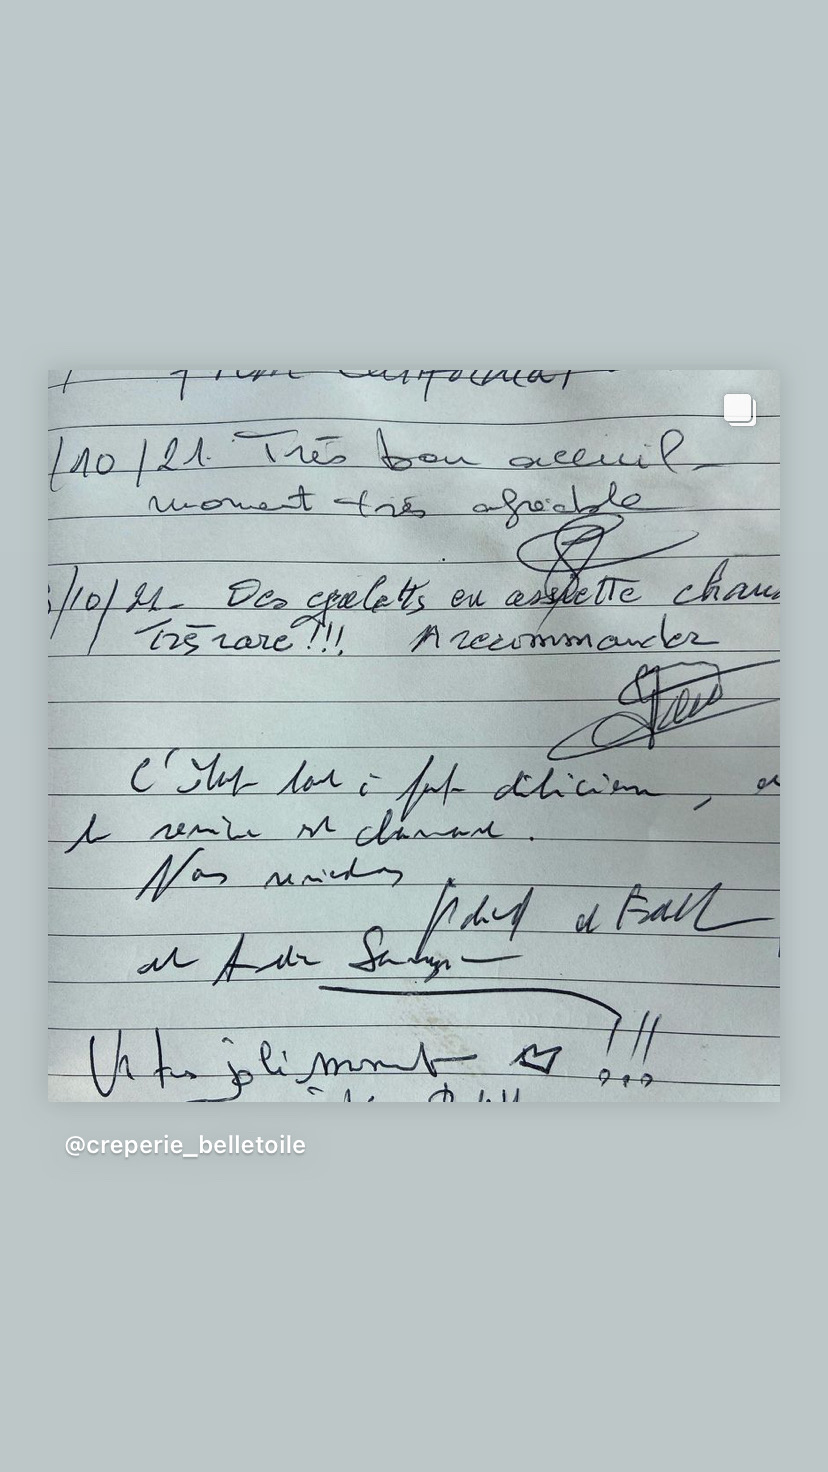 /10/21. Très bon accueil
moment très agréable
/10/21. Des galetts en assiette chau
Très rare !!! A recommander
C'était tout à fait délicieux, et
le service est charmant.
Nous reviendrons
et
et
Un très joli moment !!!
@creperie_belletoile